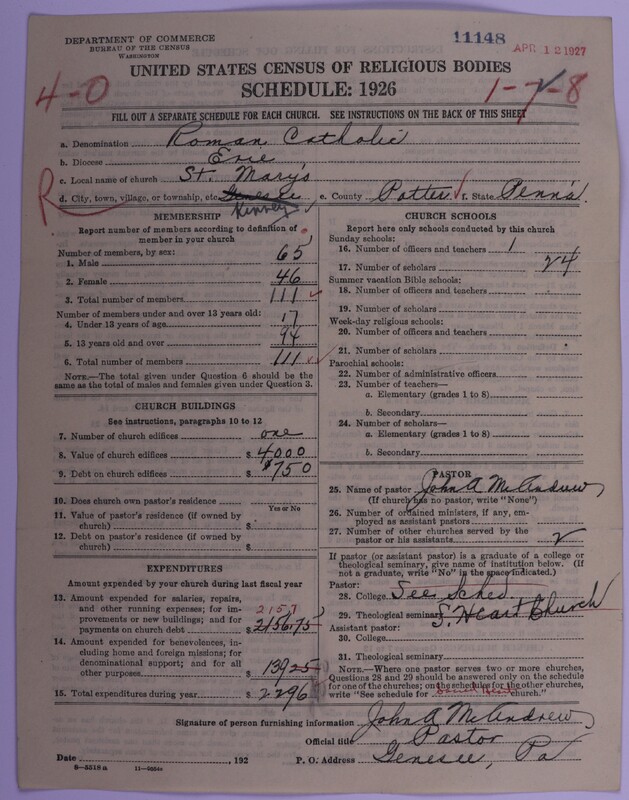 DEPARTMENT OF COMMERCE
BUREAU OF THE CENSUS
WASHINGTON
11148
APR 12 1927
UNITED STATES CENSUS OF RELIGIOUS BODIES
SCHEDULE: 1926
4-0
1-7-8
FILL OUT A SEPARATE SCHEDULE FOR EACH CHURCH. SEE INSTRUCTIONS ON THE BACK OF THIS SHEET
a. Denomination Roman Catholic
b. Diocese Erie,
c. Local name of church St. Mary's
R d. City, town, village, or township, etc. Genesee e. County Potter f. State Penn'a
Kinney
MEMBERSHIP
Report number of members according to definition of member in your church
Number of members, by sex:
1. Male 65
2. Female 46
3. Total number of members 111
Number of members under and over 13 years old:
4. Under 13 years of age 17
5. 13 years old and over 94
6. Total number of members 111
NOTE.—The total given under Question 6 should be the same as the total of males and females given under Question 3.
CHURCH BUILDINGS
See instructions, paragraphs 10 to 12
7. Number of church edifices one
8. Value of church edifices $ 4000
9. Debt on church edifices $ $750
10. Does church own pastor's residence
Yes or No
11. Value of pastor's residence (if owned by church) $
12. Debt on pastor's residence (if owned by church) $
EXPENDITURES
Amount expended by your church during last fiscal year
13. Amount expended for salaries, repairs, and other running expenses; for improvements or new buildings; and for payments on church debt $ 2156.75
2157
14. Amount expended for benevolences, including home and foreign missions; for denominational support; and for all other purposes $ 139.25
15. Total expenditures during year $ 2296
CHURCH SCHOOLS
Report here only schools conducted by this church
Sunday schools:
16. Number of officers and teachers 1
17. Number of scholars 24
Summer vacation Bible schools:
18. Number of officers and teachers
19. Number of scholars
Week-day religious schools:
20. Number of officers and teachers
21. Number of scholars
Parochial schools:
22. Number of administrative officers
23. Number of teachers—
a. Elementary (grades 1 to 8)
b. Secondary
24. Number of scholars—
a. Elementary (grades 1 to 8)
b. Secondary
PASTOR
25. Name of pastor John A McAndrew
(If church has no pastor, write "None")
26. Number of ordained ministers, if any, employed as assistant pastors
27. Number of other churches served by the pastor or his assistants 2
If pastor (or assistant pastor) is a graduate of a college or theological seminary, give name of institution below. (If not a graduate, write "No" in the space indicated.)
Pastor:
28. College See Sched.
29. Theological seminary S. Heart Church
Assistant pastor:
30. College
31. Theological seminary
NOTE.—Where one pastor serves two or more churches, Questions 28 and 29 should be answered only on the schedule for one of the churches; on the schedules for the other churches, write "See schedule for Sacred Heart church."
Signature of person furnishing information John A McAndrew
Official title Pastor
Date , 192 P. O. Address Genesee, Pa
8-5218a 11-